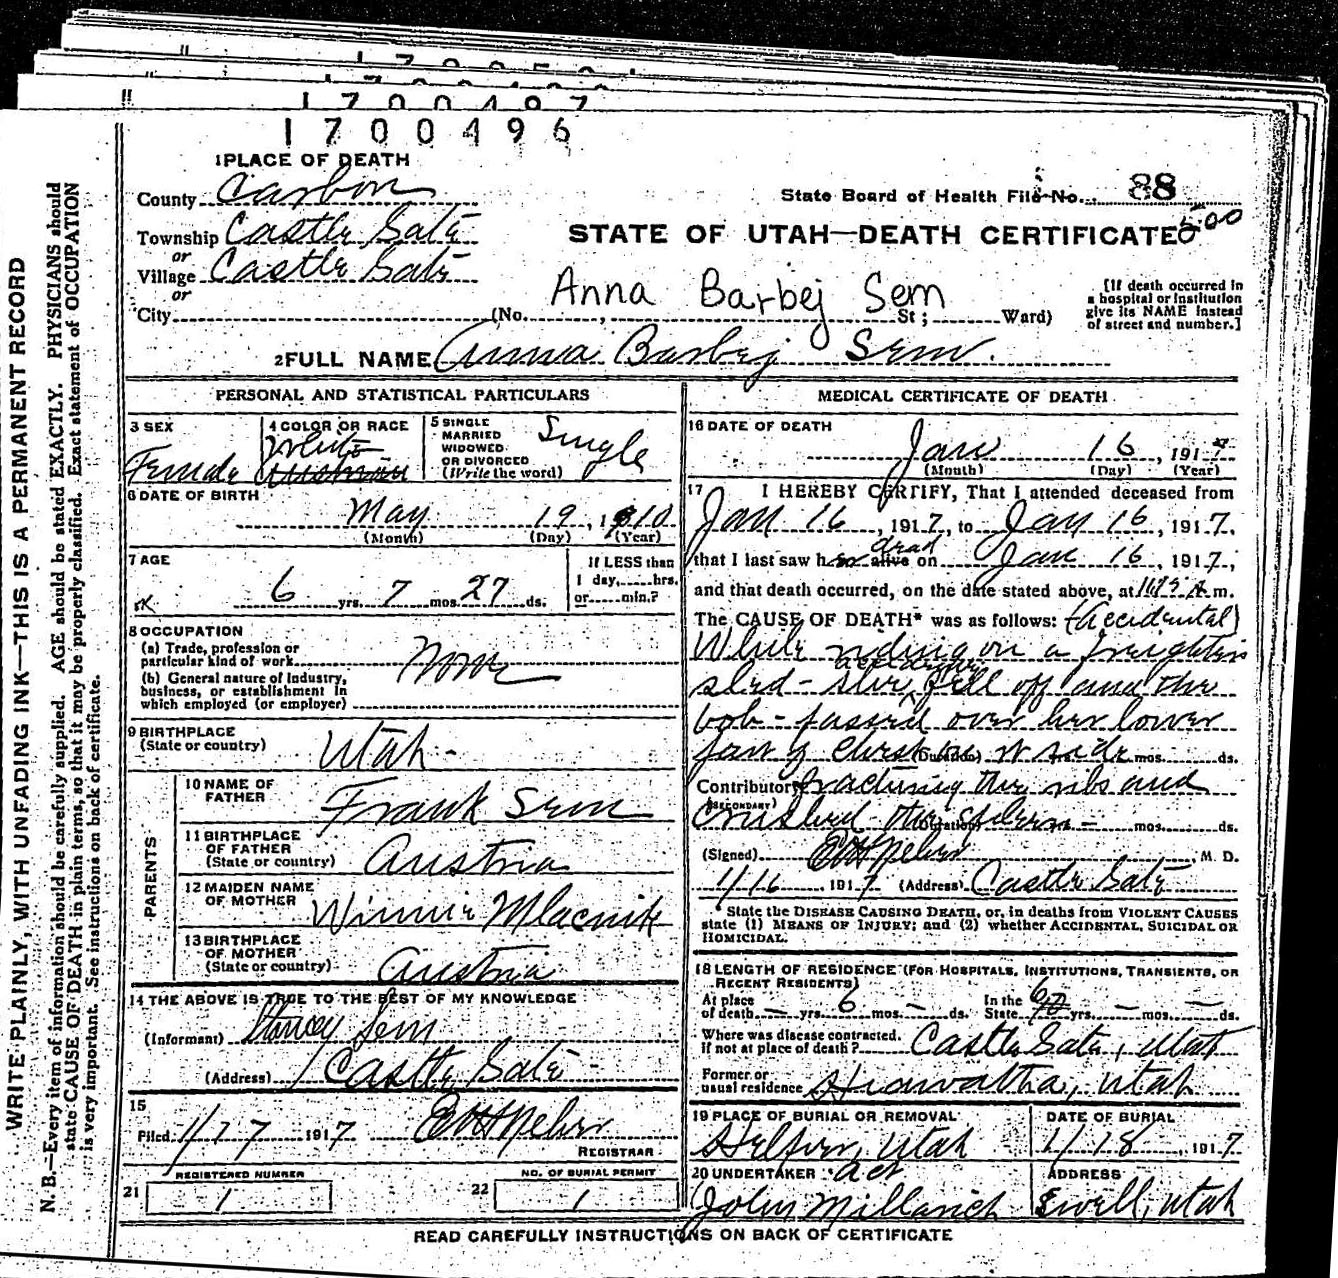 1700497
1700496
1 PLACE OF DEATH
County Carbon
State Board of Health File No. 88
Township Castle Gate
or
STATE OF UTAH—DEATH CERTIFICATE
500
Village Castle Gate
or
City (No. , St; Ward)
Anna Barbej Sem
[If death occurred in
a hospital or institution
give its NAME instead
of street and number.]
2 FULL NAME Anna Barbej Sem.
PERSONAL AND STATISTICAL PARTICULARS
3 SEX
Female
4 COLOR OR RACE
White
5 SINGLE
MARRIED
WIDOWED
OR DIVORCED
(Write the word)
Single
6 DATE OF BIRTH
May 19, 1910
(Month) (Day) (Year)
7 AGE
6 yrs. 7 mos. 27 ds.
If LESS than
1 day, hrs.
or min.?
8 OCCUPATION
(a) Trade, profession or
particular kind of work
None
(b) General nature of industry,
business, or establishment in
which employed (or employer)
9 BIRTHPLACE
(State or country)
Utah -
PARENTS
10 NAME OF
FATHER
Frank Sem
11 BIRTHPLACE
OF FATHER
(State or country)
Austria
12 MAIDEN NAME
OF MOTHER
Winnie Mlacnik
13 BIRTHPLACE
OF MOTHER
(State or country)
Austria
14 THE ABOVE IS TRUE TO THE BEST OF MY KNOWLEDGE
(Informant) Sem
(Address) Castle Gate -
15
Filed 1/17 1917
REGISTRAR
REGISTERED NUMBER
21 1
NO. OF BURIAL PERMIT
22 1
MEDICAL CERTIFICATE OF DEATH
16 DATE OF DEATH
Jan 16, 1917
(Month) (Day) (Year)
17 I HEREBY CERTIFY, That I attended deceased from
Jan 16, 1917, to Jan 16, 1917,
that I last saw her alive dead on Jan 16, 1917,
and that death occurred, on the date stated above, at A.m.
The CAUSE OF DEATH* was as follows: (Accidental)
While riding on a freighters
sled - she accidently fell off and the
bob - passed over her lower
side
(Duration) yrs. mos. ds.
Contributory fracturing the ribs and
(SECONDARY)
crushed the spleen -
(Duration) mos. ds.
(Signed) M. D.
1/16, 1917 (Address) Castle Gate
* State the DISEASE CAUSING DEATH, or, in deaths from VIOLENT CAUSES
state (1) MEANS OF INJURY; and (2) whether ACCIDENTAL, SUICIDAL OR
HOMICIDAL.
18 LENGTH OF RESIDENCE (FOR HOSPITALS, INSTITUTIONS, TRANSIENTS, OR
RECENT RESIDENTS)
At place
of death — yrs. 6 mos. — ds.
In the
State 6 yrs. — mos. — ds.
Where was disease contracted,
if not at place of death? Castle Gate, Utah
Former or
usual residence Hiawatha, Utah
19 PLACE OF BURIAL OR REMOVAL
Helper, Utah
DATE OF BURIAL
1/18, 1917
20 UNDERTAKER act
John Millarich
ADDRESS
Ewell, Utah
READ CAREFULLY INSTRUCTIONS ON BACK OF CERTIFICATE
WRITE PLAINLY, WITH UNFADING INK—THIS IS A PERMANENT RECORD
N. B.—Every item of information should be carefully supplied. AGE should be stated EXACTLY. PHYSICIANS should
state CAUSE OF DEATH in plain terms, so that it may be properly classified. Exact statement of OCCUPATION
is very important. See instructions on back of certificate.